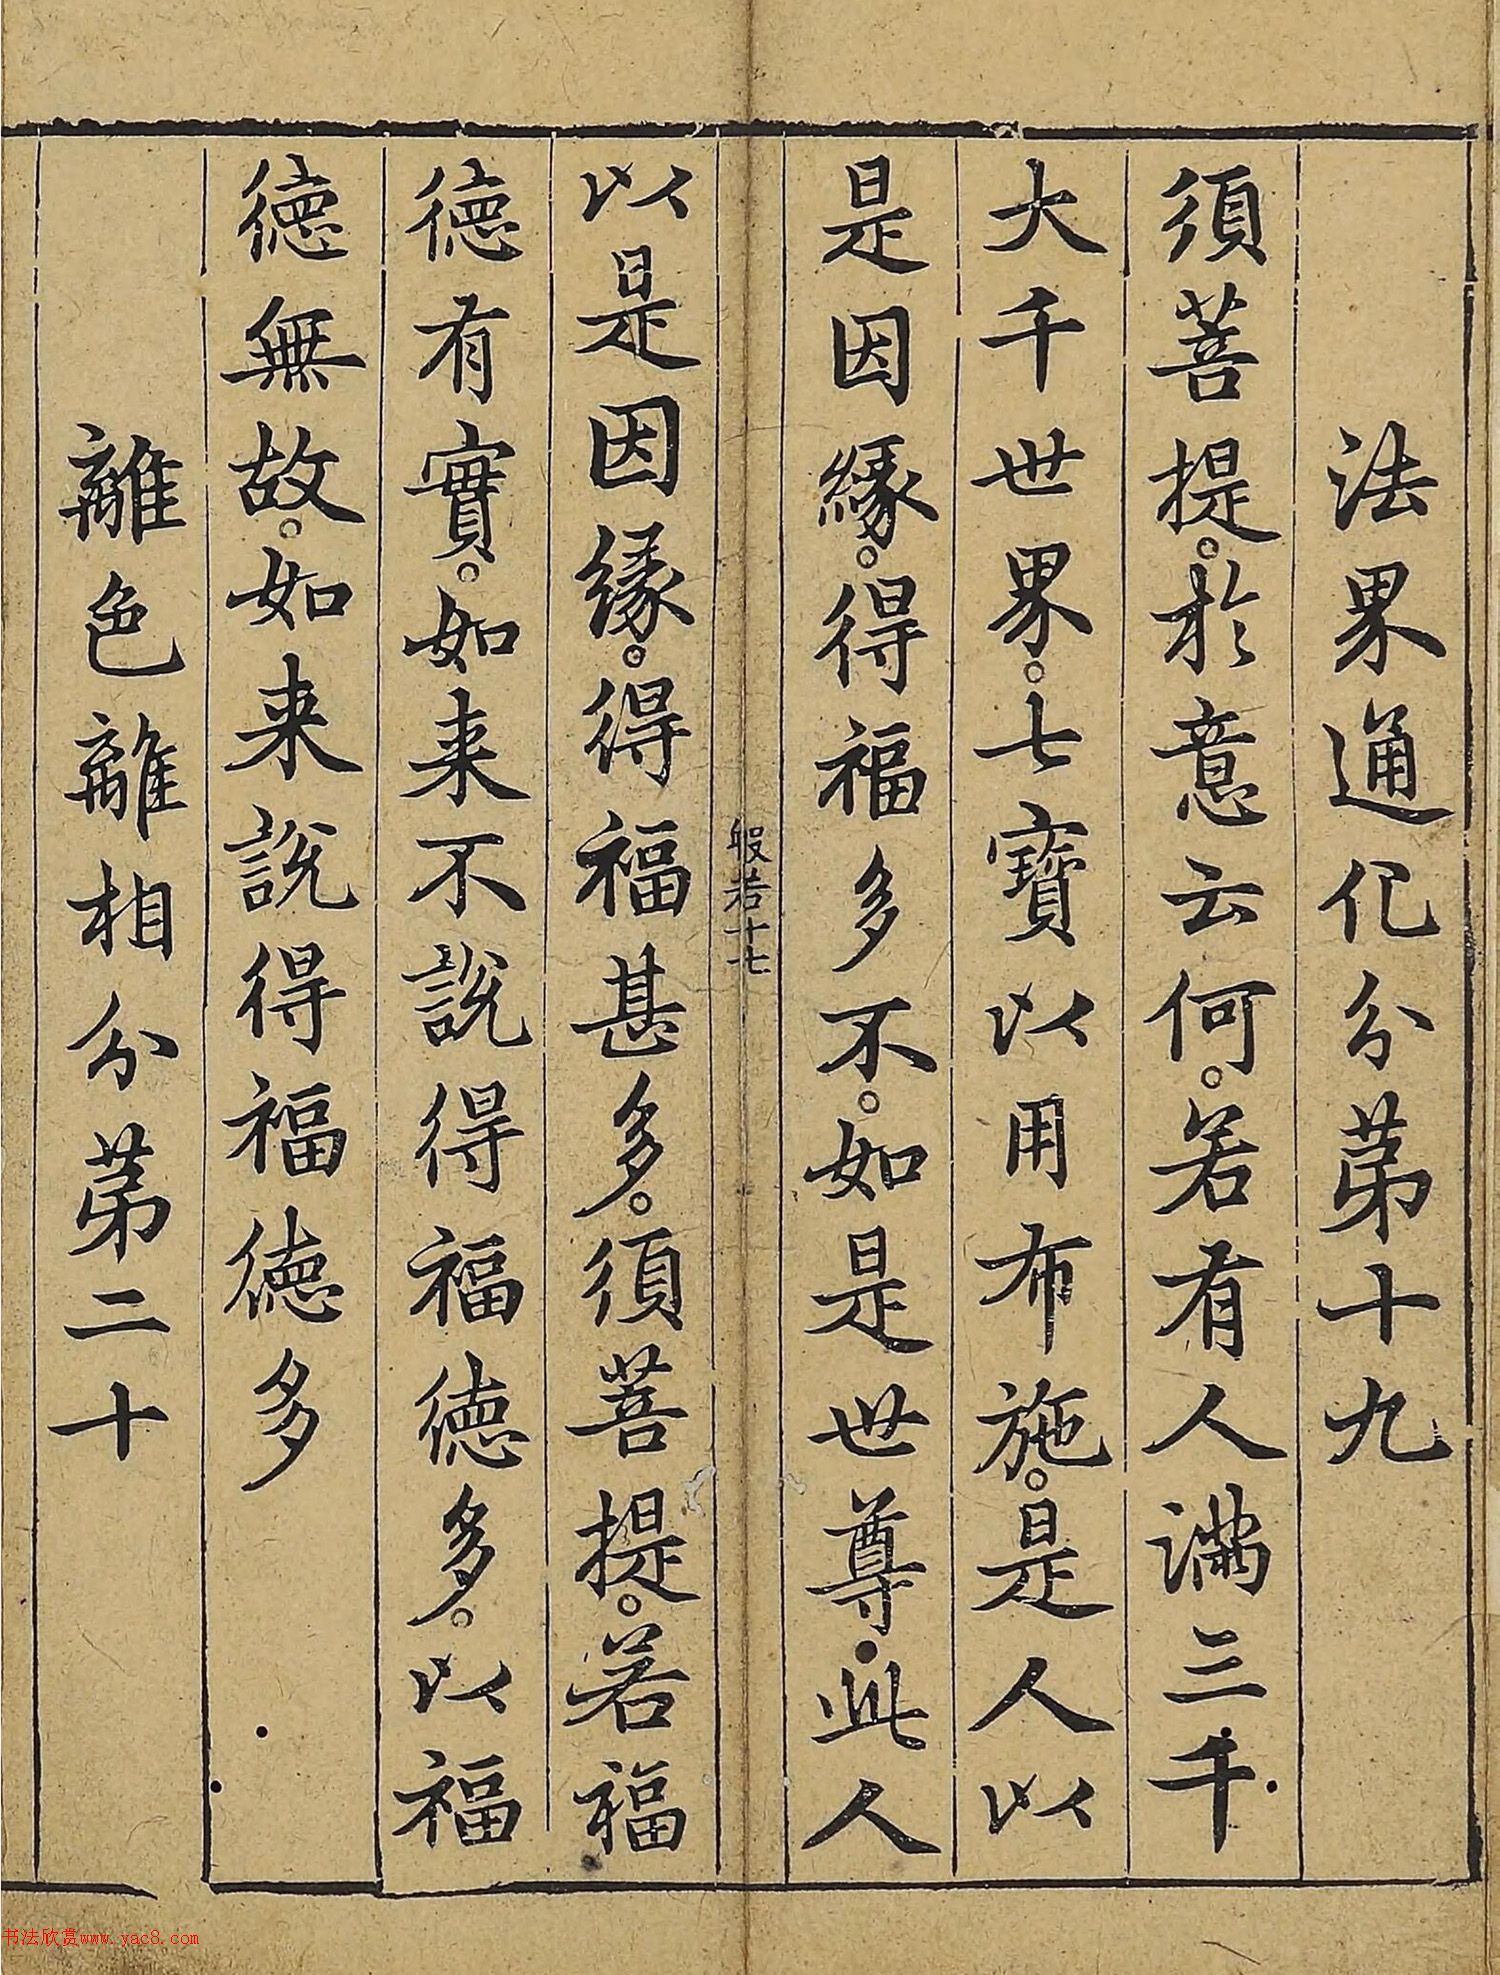 法界通化分第十九
須菩提。於意云何。若有人滿三千
大千世界。七寶以用布施。是人以
是因緣。得福多不。如是世尊。此人
般若十七
以是因緣。得福甚多。須菩提。若福
德有實。如来不說得福德多。以福
德無故。如来說得福德多
離色離相分第二十
书法欣赏www.yac8.com